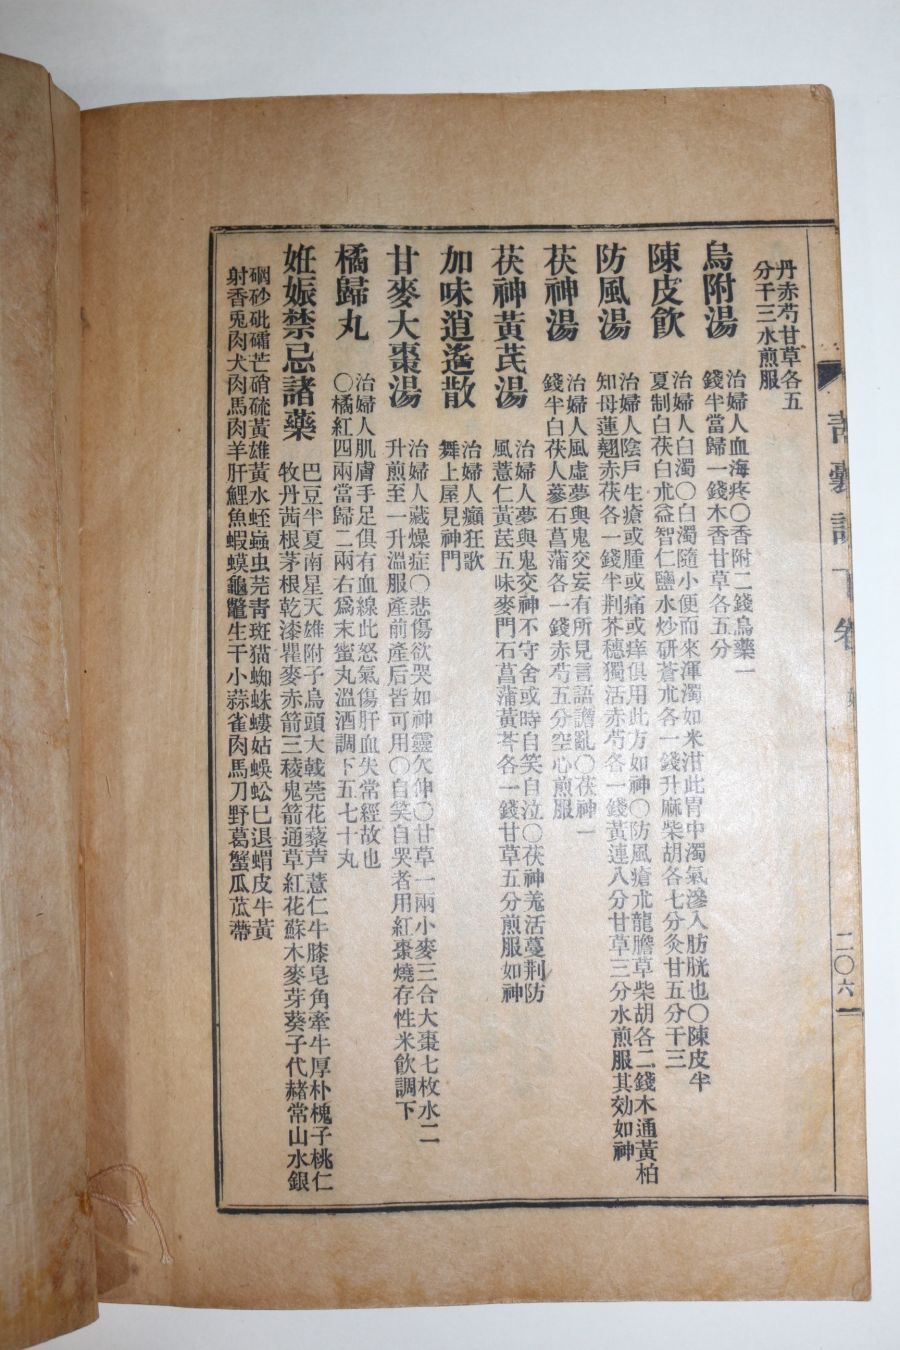 丹赤芍甘草各五
分干三水煎服
烏附湯
治婦人血海疼〇香附二錢烏藥一
錢半當歸一錢木香甘草各五分
陳皮飮
治婦人白濁〇白濁隨小便而來渾濁如米泔此胃中濁氣滲入肪胱也〇陳皮半
夏制白茯白朮益智仁鹽水炒研蒼朮各一錢升麻柴胡各七分灸甘五分干三
防風湯
治婦人陰戶生瘡或腫或痛或痒俱用此方如神〇防風瘡朮龍膽草柴胡各二錢木通黃柏
知母蓮翹赤茯各一錢半荆芥穗獨活赤芍各一錢黃連八分甘草三分水煎服其効如神
茯神湯
治婦人風虛夢與鬼交妄有所見言語譫亂〇茯神一
錢半白茯人蔘石菖蒲各一錢赤芍五分空心煎服
茯神黃芪湯
治婦人夢與鬼交神不守舍或時自笑自泣〇茯神羌活蔓荆防
風薏仁黃芪五味麥門石菖蒲黃芩各一錢甘草五分煎服如神
加味逍遙散
治婦人癲狂歌
舞上屋見神門
甘麥大棗湯
治婦人藏燥症〇悲傷欲哭如神靈欠伸〇甘草一兩小麥三合大棗七枚水二
升煎至一升溫服產前產后皆可用〇自笑自哭者用紅棗燒存性米飮調下
橘歸丸
治婦人肌膚手足俱有血線此怒氣傷肝血失常經故也
〇橘紅四兩當歸二兩右爲末蜜丸溫酒調下五七十丸
姙娠禁忌諸藥
巴豆半夏南星天雄附子烏頭大戟莞花藜芦薏仁牛膝皂角牽牛厚朴槐子桃仁
牧丹茜根茅根乾漆瞿麥赤箭三稜鬼箭通草紅花蘇木麥芽葵子代赭常山水銀
硇砂砒礵芒硝硫黃雄黃水蛭䖟虫芫靑斑猫蜘蛛螻姑蜈蚣巳退蝟皮牛黃
射香兎肉犬肉馬肉羊肝鯉魚蝦蟆龜鼈生干小蒜雀肉馬刀野葛蟹瓜苽蔕
二〇六